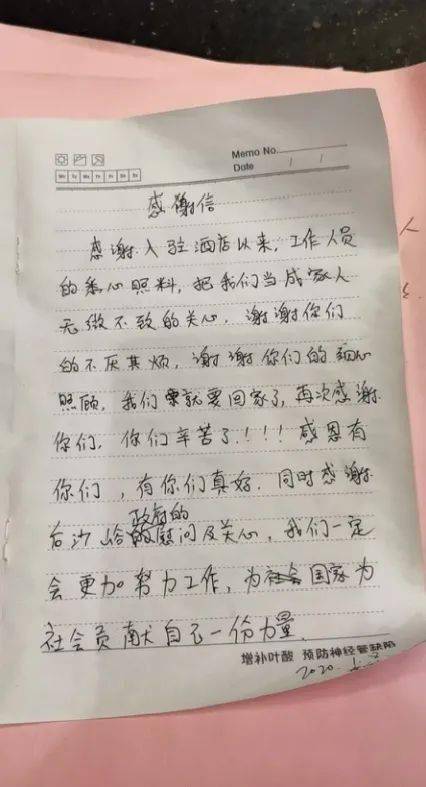 Memo No.
Mo Tu We Th Fr Sa Su
Date / /
感谢信
感谢入驻酒店以来,工作人员
的悉心照料,把我们当成家人
无微不致的关心,谢谢你们
的不厌其烦,谢谢你们的细心
照顾,我们就要回家了,再次感谢
你们,你们辛苦了!!!感恩有
你们,有你们真好.同时感谢
政府的
后沙峪慰问及关心,我们一定
会更加努力工作,为国家为
社会贡献自己一份力量.
增补叶酸 预防神经管缺陷
2020.